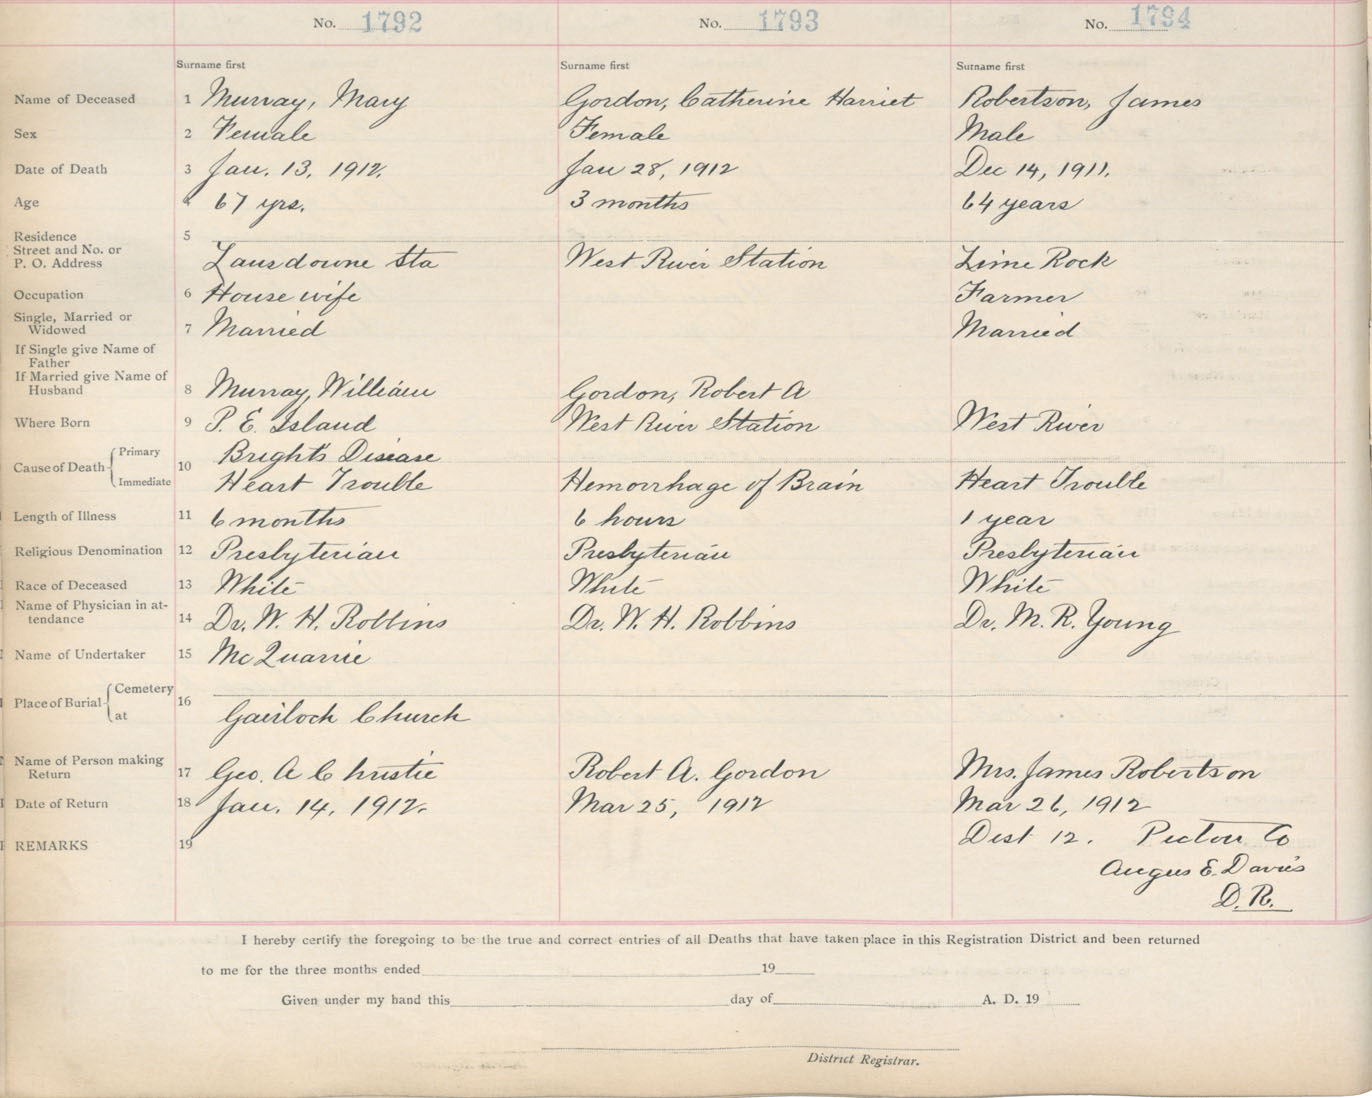 No. 1792 No. 1793 No. 1794
Surname first Surname first Surname first
Name of Deceased 1 Murray, Mary Gordon, Catherine Harriet Robertson, James
Sex 2 Female Female Male
Date of Death 3 Jan. 13, 1912. Jan 28, 1912 Dec 14, 1911.
Age 4 67 yrs. 3 months 64 years
Residence 5
Street and No. or
P. O. Address Lansdowne Sta West River Station Lime Rock
Occupation 6 House wife Farmer
Single, Married or
Widowed 7 Married Married
If Single give Name of
Father
If Married give Name of
Husband 8 Murray, William Gordon, Robert A
Where Born 9 P. E. Island West River Station West River
Cause of Death Primary 10 Bright's Disease
Immediate Heart Trouble Hemorrhage of Brain Heart Trouble
Length of Illness 11 6 months 6 hours 1 year
Religious Denomination 12 Presbyterian Presbyterian Presbyterian
Race of Deceased 13 White White White
Name of Physician in at-
tendance 14 Dr. W. H. Robbins Dr. W. H. Robbins Dr. M. R. Young
Name of Undertaker 15 McQuarrie
Place of Burial Cemetery 16
at Gairloch Church
Name of Person making
Return 17 Geo. A Christie Robert A. Gordon Mrs. James Robertson
Date of Return 18 Jan. 14, 1912. Mar 25, 1912 Mar 26, 1912
REMARKS 19 Dist 12. Pictou Co
Angus E. Davis
D. R.
I hereby certify the foregoing to be the true and correct entries of all Deaths that have taken place in this Registration District and been returned
to me for the three months ended 19
Given under my hand this day of A. D. 19
District Registrar.